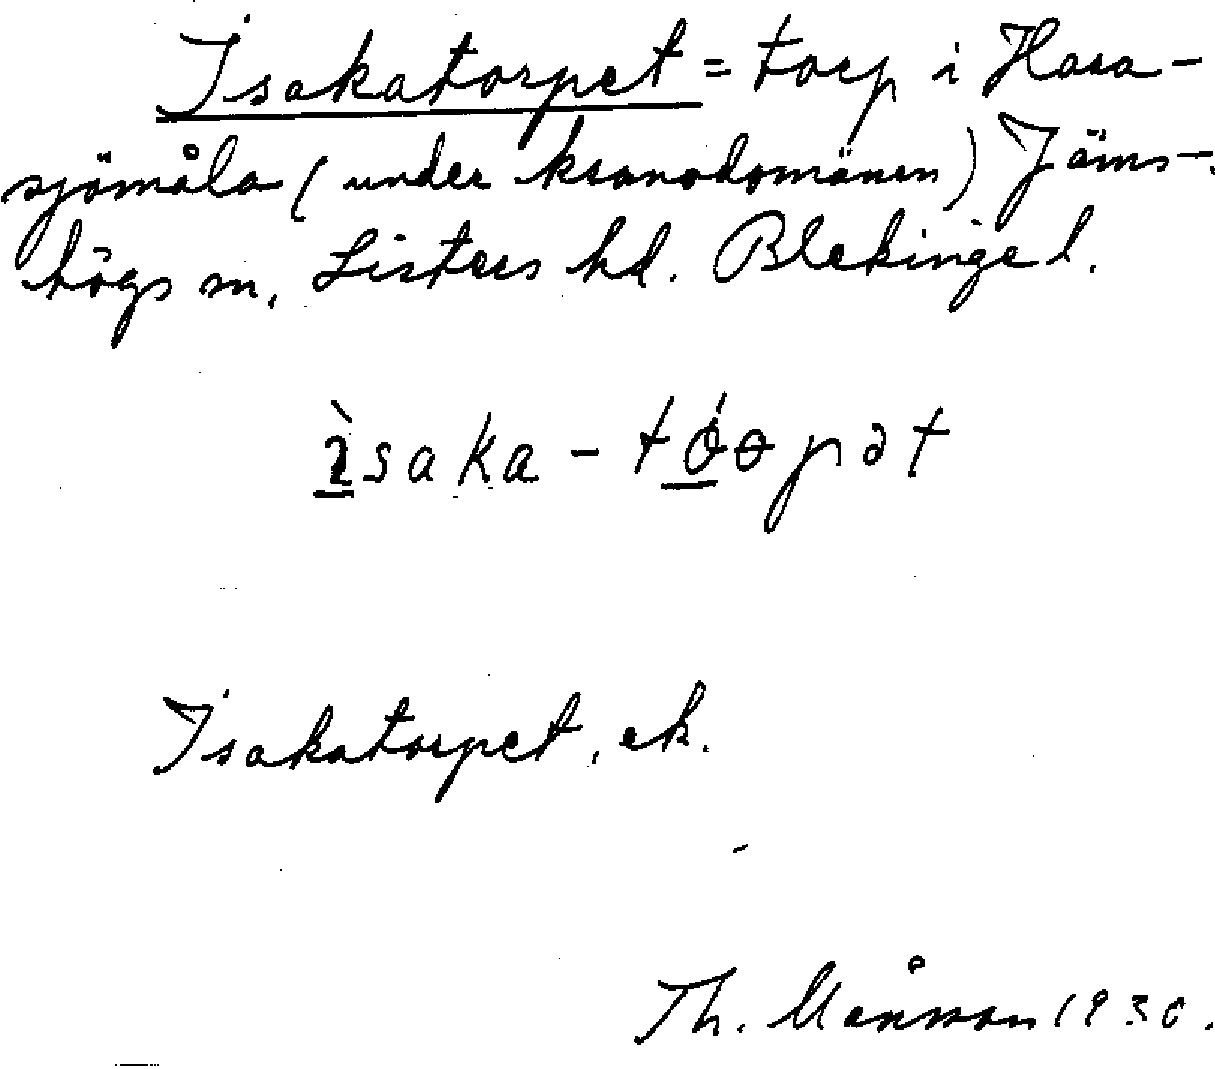 Isakatorpet = torp i Hara-
sjömåla (under kronodomänen) Jäms-
högs sn, Listers hd. Blekinge l.
ìsaka-tǿɵpət
Isakatorpet, ek.
Th. Månsson 1930.